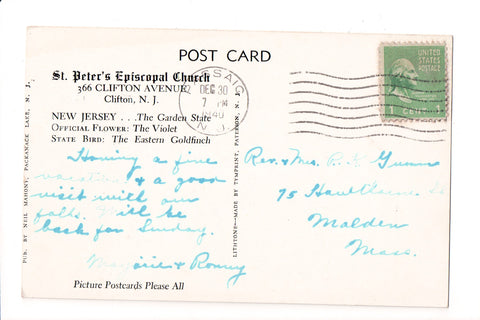 POST CARD
St. Peter's Episcopal Church
366 CLIFTON AVENUE
Clifton, N. J.
NEW JERSEY . . . The Garden State
OFFICIAL FLOWER: The Violet
STATE BIRD: The Eastern Goldfinch
Having a fine
vacation & a good
visit with our
folks. Will be
back for Sunday.
Marjorie & Ronny
Picture Postcards Please All
PUB. BY NEIL MAHONY, PACKANACK LAKE, N. J.
LITHTONE—MADE BY TYMPRINT PATERSON, N. J.
DEC 30
7 PM
1940
N.J.
UNITED
STATES
POSTAGE
1 CENT 1
Rev. & Mrs. R. K.
75 Hawthorne St
Malden
Mass.